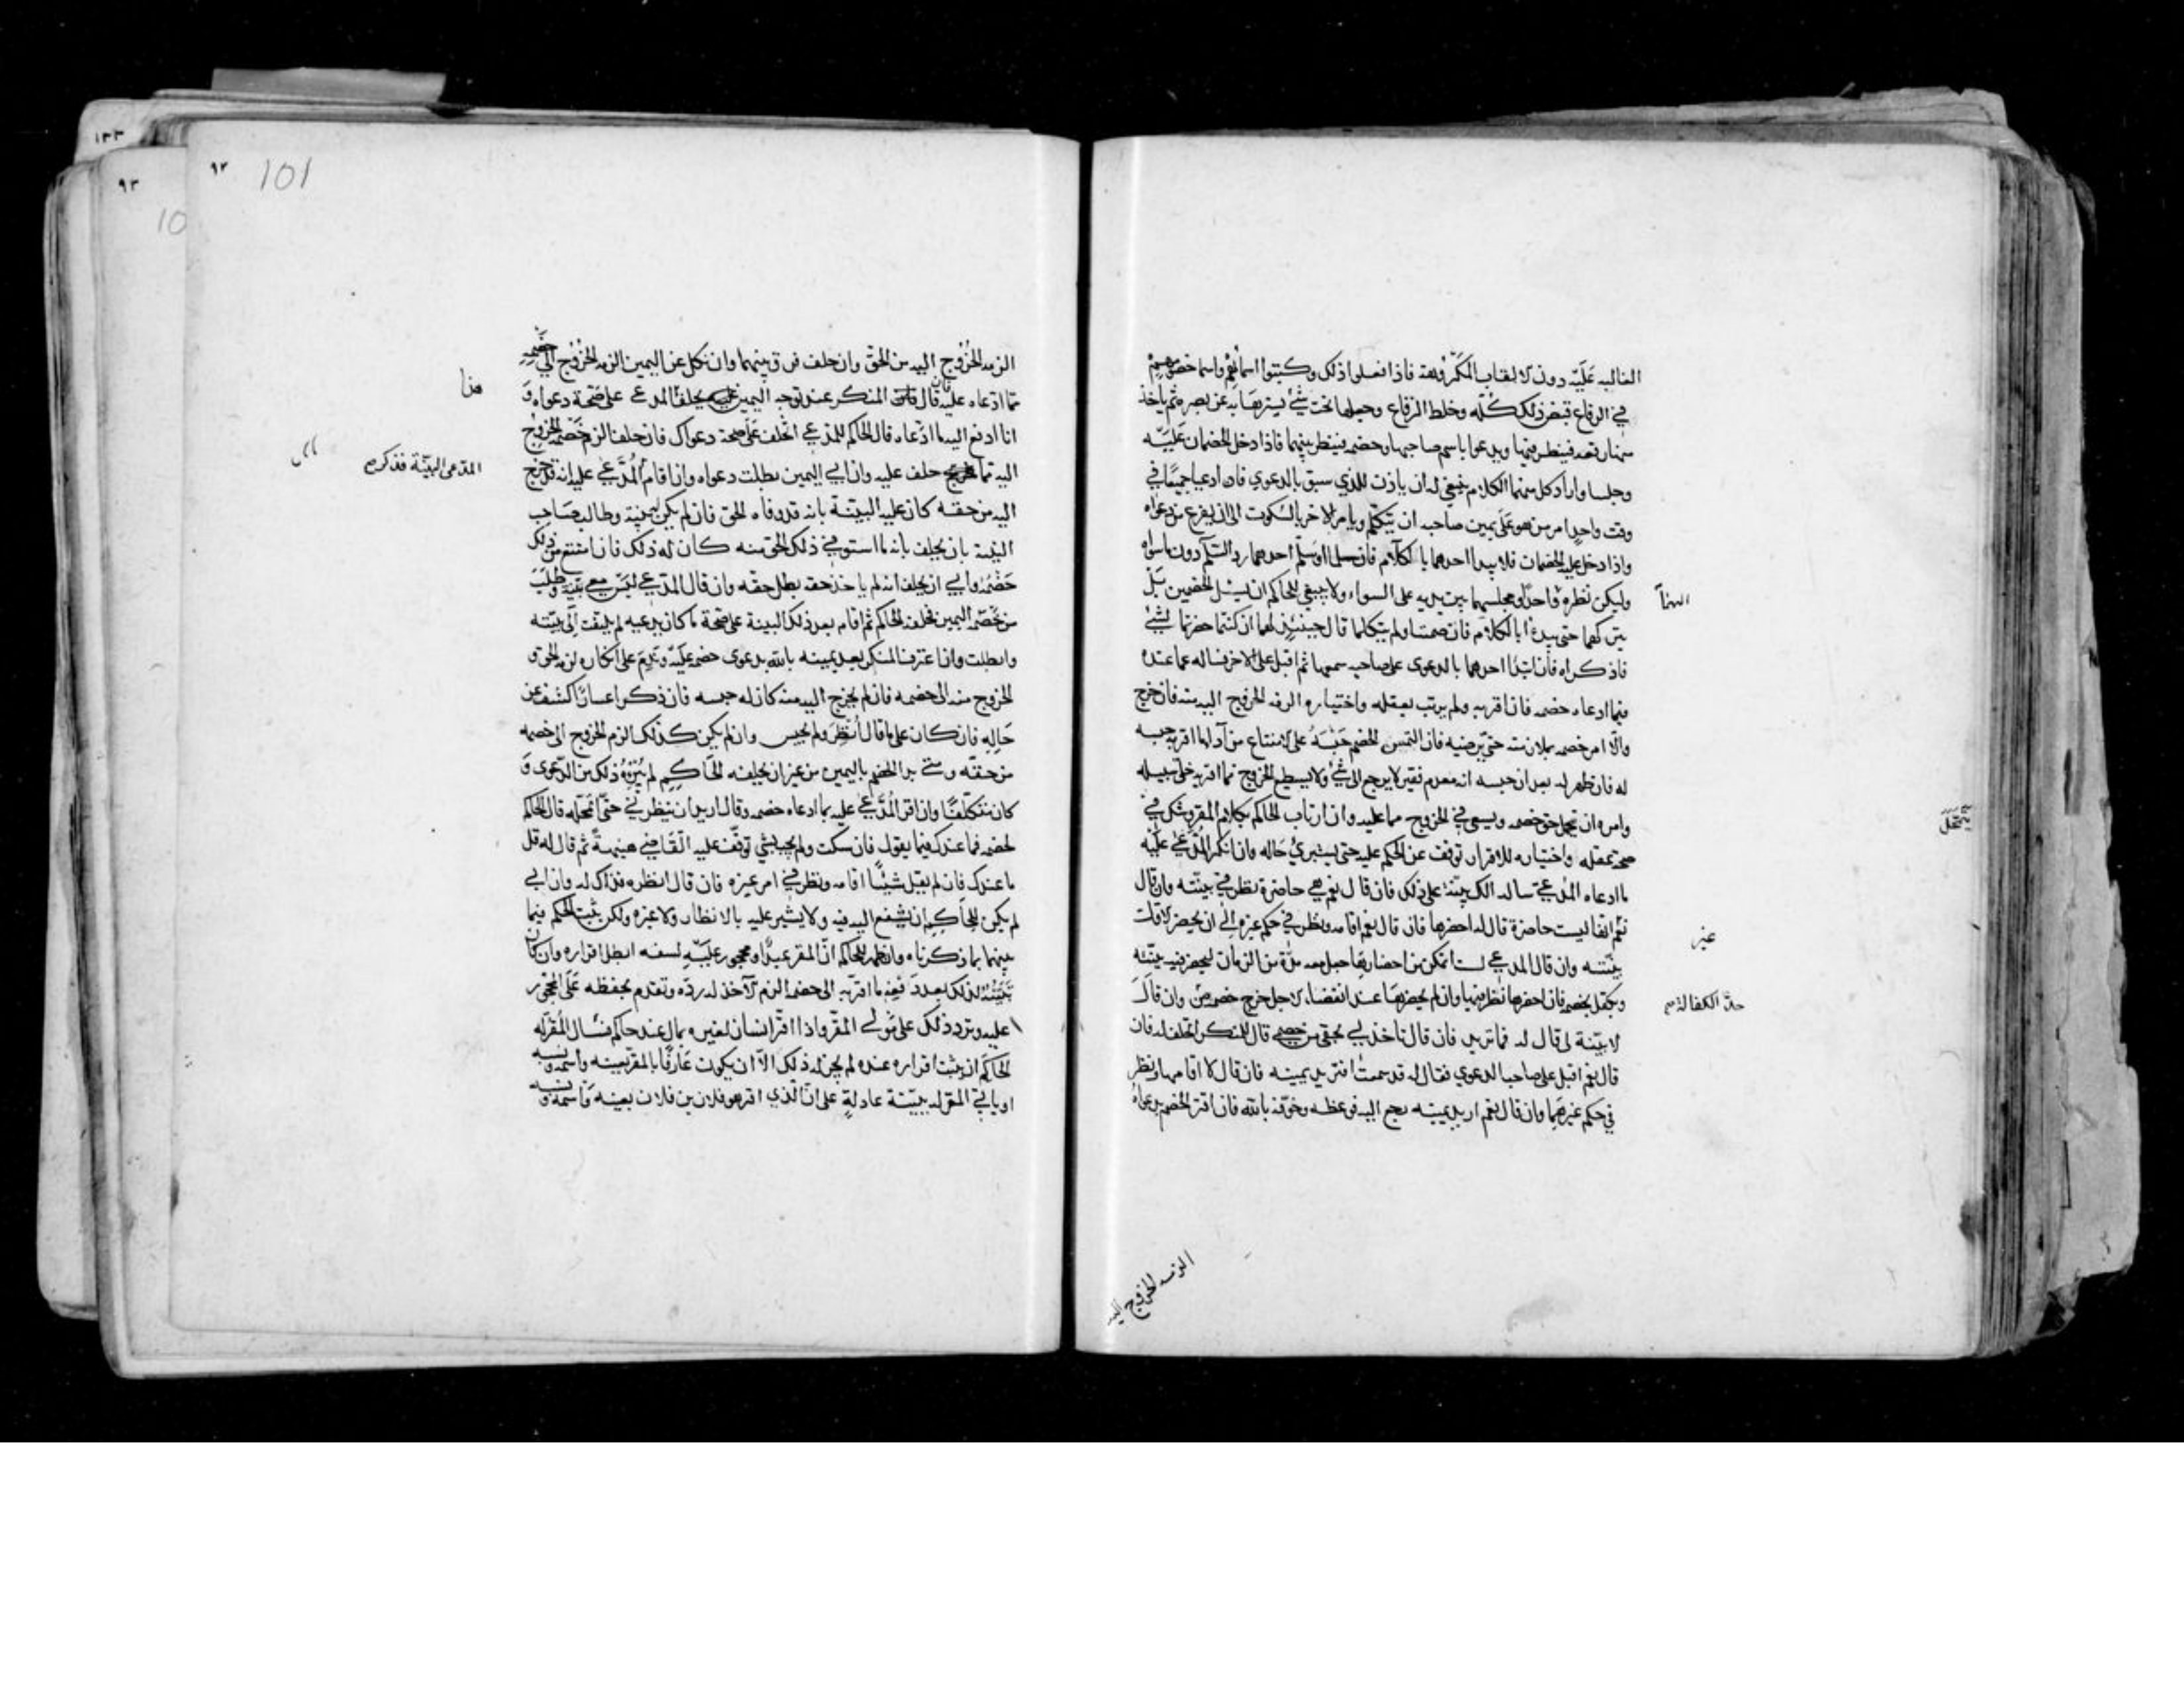 الغالبه عليه دون الالقاب المكروهة فاذا فعلوا ذلك وكتبوا اسمائهم واسما خصومهم
في الرقاع قبض ذلك كله وخلط الرقاع وجعلها تحت شئ يسترها به عن بصره ثم ياخذ
منها رقعه فينظر فيها ويدعوا باسم صاحبها وخصمه فينظر بينهما فاذا دخل الخصمان عليه
وجلسا واراد كل منهما الكلام ينبغي له ان ياذن للذي سبق بالدعوي فان ادعيا جميعا في
وقت واحد امر من هو على يمين صاحبه ان يتكلم ويامر الاخر بالسكوت الى ان يفرغ من دعواه
واذا دخل عليه الخصمان فلا يبدا احدهما بالكلام فان سلما او سلم احدهما رد السلام دون ما سواه
وليكن نظره اليهما واحدا ومجلسهما بين يديه على السواء ولا ينبغي للحاكم ان يسئل الخصمين بل
يتركهما حتى يبدءا بالكلام فان صمتا ولم يتكلما قال حينئذ لهما ان كنتما حضرتما لشئ
فاذكراه فان بدا احدهما بالدعوى على صاحبه سمعها ثم اقبل على الاخر فساله عما عنده
فيما ادعاه خصمه فان اقر به ولم يرتب بعقله واختياره الزمه الخروج اليه منه فان خرج
والا امر خصمه بملازمته حتى يرضيه فان التمس الخصم حبسه على الامتناع من ادا ما اقر به حبسه
له فان ظهر له بعد ان حبسه انه معدم فقير لا يرجع الى شئ ولا يستطيع الخروج مما اقر به خلى سبيله
وامره ان يتمحل حق خصمه ويسعى في الخروج مما عليه وان ارتاب الحاكم بكلام المقر وشك في
صحة عقله واختياره للاقرار توقف عن الحكم عليه حتى يستبرئ حاله وان انكر المدعي عليه
ما ادعاه المدعي ساله الك بينة على ذلك فان قال نعم هي حاضرة نظر في بينته وان قال
نعم انها ليست حاضرة قال له احضرها فان قال نعم اقامه ونظر في حكم غيره الى ان يحضر الاول
بينته وان قال المدعي لست اتمكن من احضارها جعل معه مدة من الزمان ليحضر فيه بينته
وتكفل بخصمه فان احضرها نظر فيها وان لم يحضرها عند انقضاء الاجل خرج خصمه من حد الكفالة وان قال
لا بينة لي قال له فما تريد فان قال تاخذ لي بحقي من خصمي قال للمنكر اتحلف له فان
قال نعم اقبل على صاحب الدعوي فقال له قد سمعت افتريد يمينه فان قال لا اقامهما ونظر
في حكم غيرهما وان قال نعم اريد يمينه رجع اليه فوعظه وخوفه بالله فان اقر الخصم بدعواه
اليهما
يتمحل
غير
حد الكفالة
الزمه الخروج اليه
٩٢ 101
الزمه الخروج اليه من الحق وان حلف فرق بينهما وان نكل عن اليمين الزمه الخروج الى خصمه
مما ادعاه عليه فان قال المنكر عند توجه اليمين عليه يحلف المدعي على صحة دعواه و
انا ادفع اليه ما ادعاه قال الحاكم للمدعي اتحلف على صحة دعواك فان حلف الزم خصمه الخروج
اليه مما حلف عليه وان ابي اليمين بطلت دعواه وان اقام المدعي عليه انه قد خرج
اليه من حقه كان عليه البينة بانه قد وفاه الحق فان لم يكن له بينة وطالب صاحب
البينة بان يحلف بانه ما استوفي ذلك الحق منه كان له ذلك فان امتنع من ذلك
خصمه وابي ان يحلف انه لم ياخذ حقه بطل حقه وان قال المدعي ليس معي بينة وطلب
من خصمه اليمين فحلفه الحاكم ثم اقام بعد ذلك البينة على صحة ما كان يدعيه لم يلتفت الى بينته
وابطلت وان اعترف المنكر بعد يمينه بالله بدعوى خصمه عليه وندم على انكاره لزمه الحق و
الخروج منه الى خصمه فان لم يخرج اليه منه كان له حبسه فان ذكر اعسارا كشف عن
حاله فان كان على ما قال انظر ولم يحبس وان لم يكن كذلك الزم الخروج الى خصمه
من حقه ومتى بدا الخصم باليمين من غير ان يحلفه الحاكم لم يبرئه ذلك من الدعوى و
كان متكلفا وان اقر المدعي عليه بما ادعاه خصمه وقال اريد ان ينظرني حتى اتمحله قال الحاكم
لخصمه فما عندك فيما يقول فان سكت ولم يجب بشئ توقف عليه القاضي هنيهة ثم قال له قل
ما عندك فان لم يقل شيئا اقامه ونظر في امر غيره فان قال انظره فذاك له وان ابي
لم يكن للحاكم ان يشفع اليه فيه ولا يشير عليه بالانظار ولا غيره ولكن يثبت الحكم فيما
بينهما بما ذكرناه وان ظهر للحاكم ان المقر عبد او محجور عليه لسفه ابطل اقراره وان كان
تبينه لذلك بعد دفعه ما اقر به الى خصمه الزم الاخذ له رده وتقدم بحفظه على المحجور
عليه وترد ذلك على مولى المقر واذا اقر انسان لغيره بمال عند حاكم فسال المقر له
الحاكم ان يثبت اقراره عنده لم يجز له ذلك الا ان يكون عارفا بالمقر بعينه واسمه ونسبه
او ياتي المقر له ببينة عادلة على ان الذي اقر هو فلان بن فلان بعينه واسمه ونسبه
هذا
المدعى البينة فذكره
١٣٣
٩٣
10